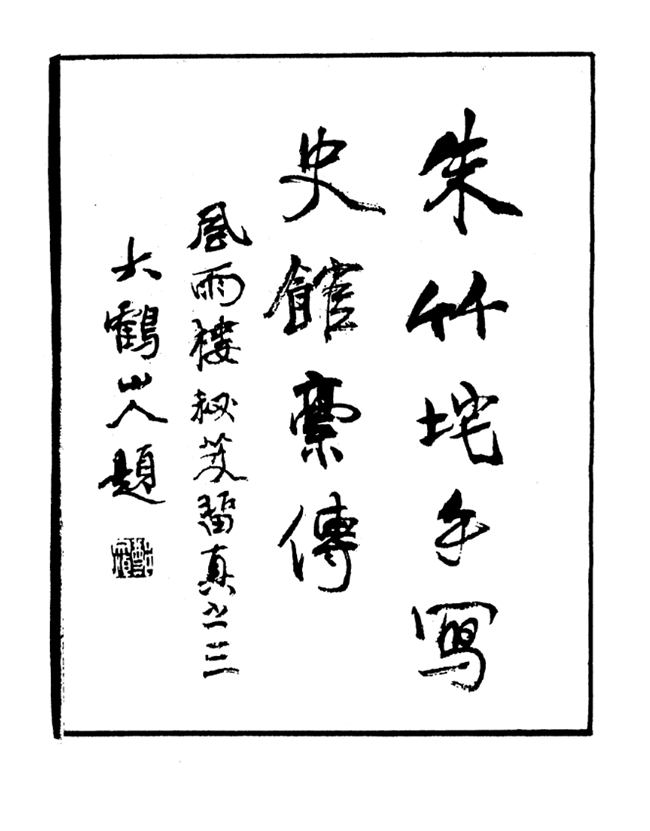 朱竹垞手寫
史館稾傳
風雨樓秘笈留真之三
大鶴山人題